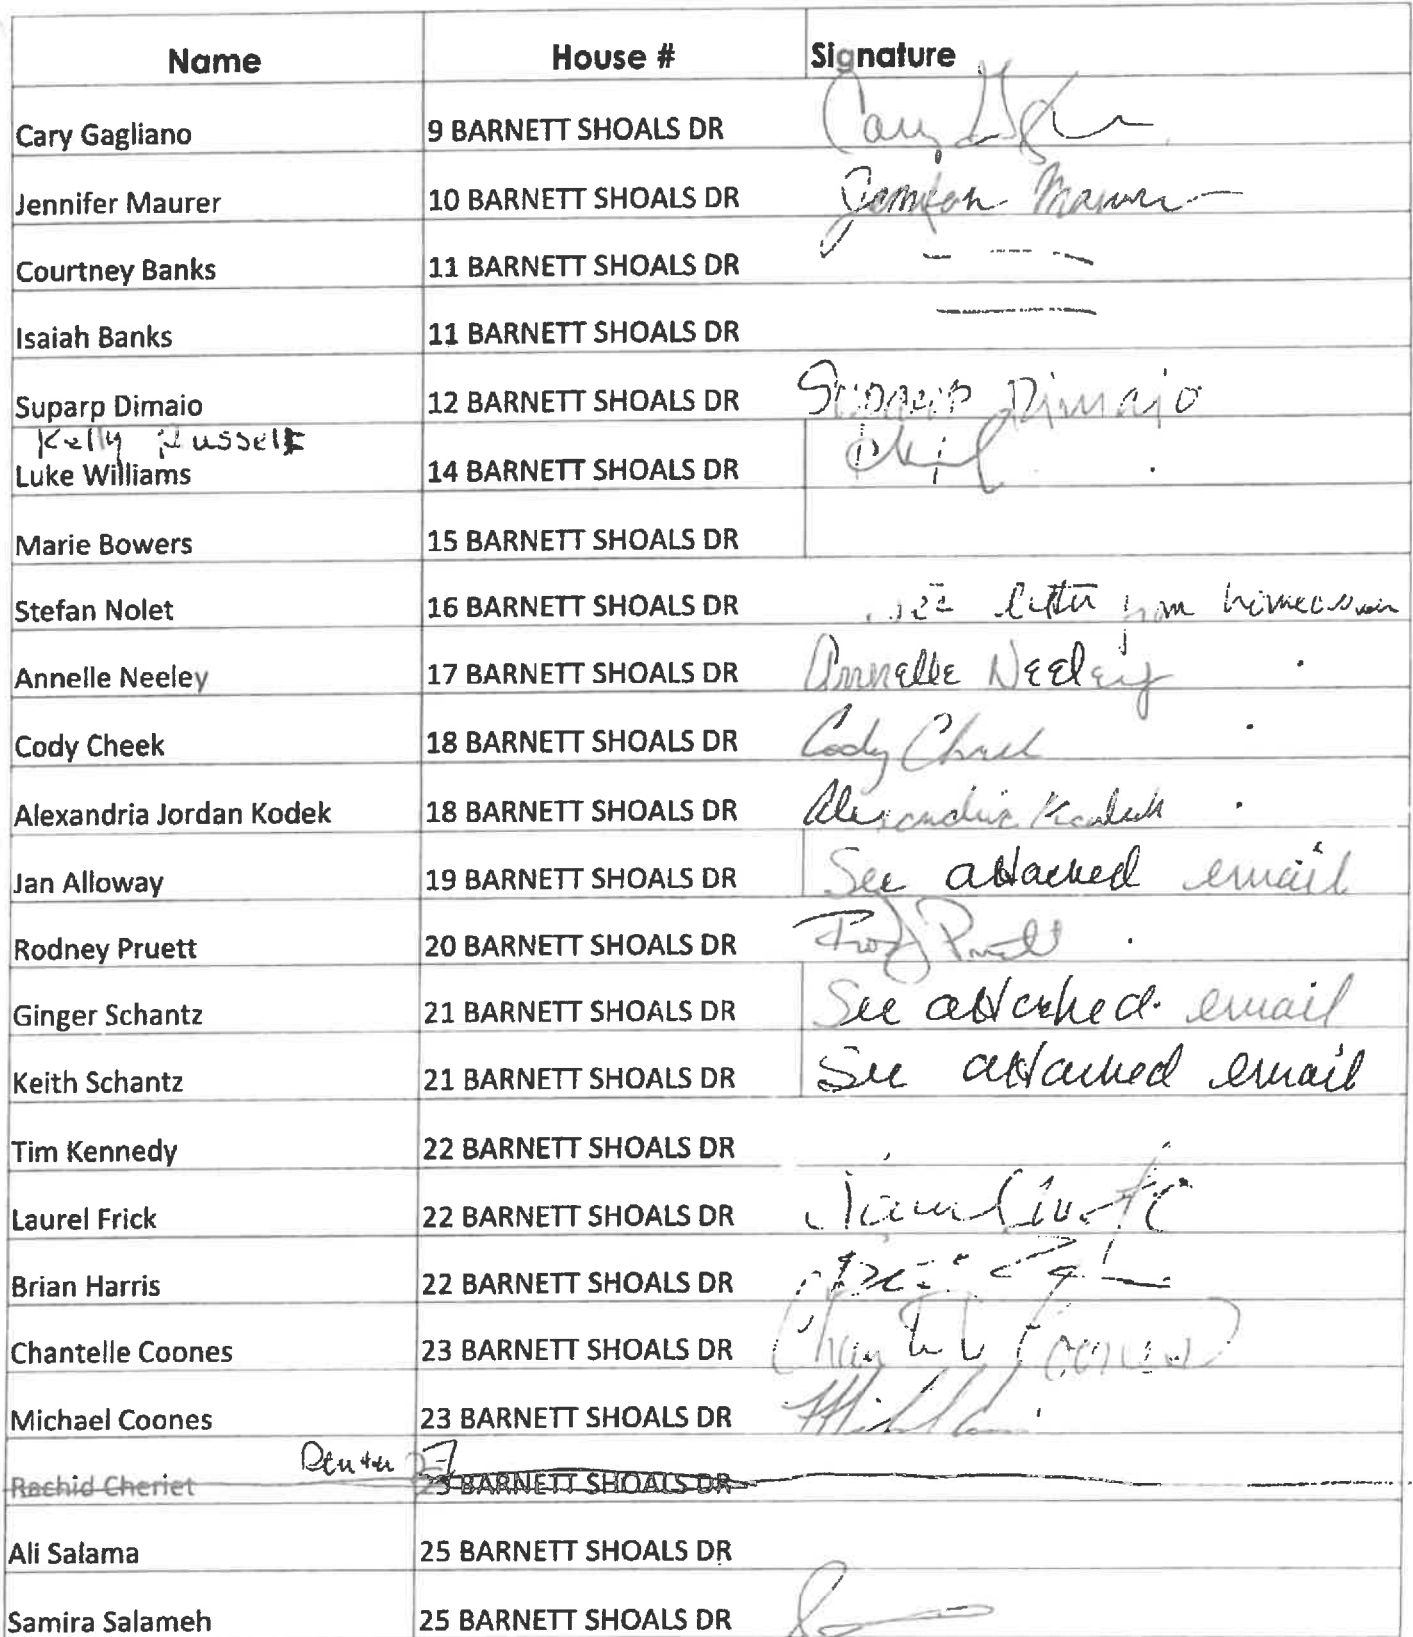 Name House # Signature
Cary Gagliano 9 BARNETT SHOALS DR Cary
Jennifer Maurer 10 BARNETT SHOALS DR Jennifer Maurer
Courtney Banks 11 BARNETT SHOALS DR
Isaiah Banks 11 BARNETT SHOALS DR
Suparp Dimaio 12 BARNETT SHOALS DR Suparp Dimaio
Kelly Russell
Luke Williams 14 BARNETT SHOALS DR
Marie Bowers 15 BARNETT SHOALS DR
Stefan Nolet 16 BARNETT SHOALS DR see letter from homeowner
Annelle Neeley 17 BARNETT SHOALS DR Annelle Neeley
Cody Cheek 18 BARNETT SHOALS DR Cody Cheek
Alexandria Jordan Kodek 18 BARNETT SHOALS DR Alexandria Kodek
Jan Alloway 19 BARNETT SHOALS DR See attached email
Rodney Pruett 20 BARNETT SHOALS DR
Ginger Schantz 21 BARNETT SHOALS DR See attached email
Keith Schantz 21 BARNETT SHOALS DR See attached email
Tim Kennedy 22 BARNETT SHOALS DR
Laurel Frick 22 BARNETT SHOALS DR
Brian Harris 22 BARNETT SHOALS DR
Chantelle Coones 23 BARNETT SHOALS DR Chantelle Coones
Michael Coones 23 BARNETT SHOALS DR
Renter
Rachid Cheriet 23 BARNETT SHOALS DR
Ali Salama 25 BARNETT SHOALS DR
Samira Salameh 25 BARNETT SHOALS DR